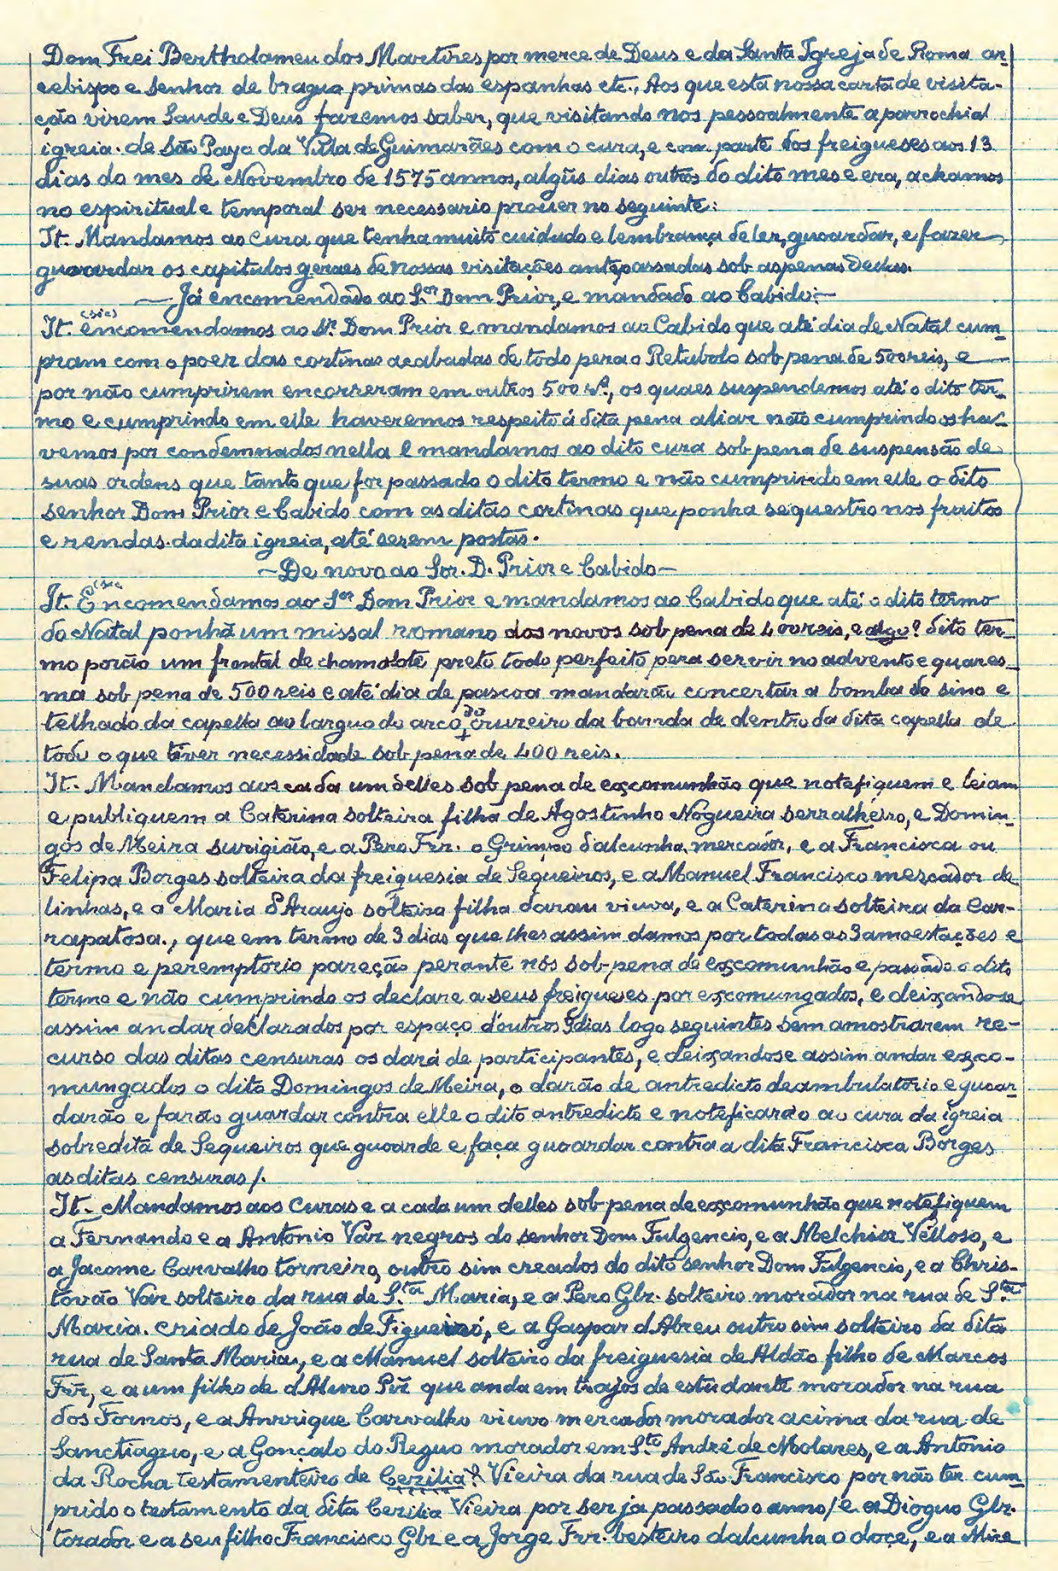 Dom Frei Bertholameu dos Martires por merce de Deus e da Santa Igreja de Roma ar-
cebispo e Senhor de bragua primas das espanhas etc., Aos que esta nossa carta de visita-
ção virem Saude e Deus fazemos saber, que visitando nos pessoalmente a parrochial
igreia. de São Payo da Villa de Guimarães com o cura, e com parte dos freigueses aos 13
dias do mes de Novembro de 1575 annos, algũs dias outros do dito mes e era, achamos
no espiritual e temporal ser necessario prouer no seguinte:
It. Mandamos ao Cura que tenha muito cuidado e lembrança de ler, guoardar, e fazer
guoardar os capitulos geraes de nossas visitações antepassadas sob as penas dellas.
— Já encomendado ao S.or Dom Prior, e mandado ao Cabido:—
(sic)
It. encomendamos ao Sr. Dom Prior e mandamos ao Cabido que até dia de Natal cum-
pram com o poer das cortinas acabadas de todo pera o Retubolo sob pena de 500 reis, e
por não cumprirem encorreram em outros 500 rs., os quaes suspendemos até o dito ter-
mo e cumprindo em elle haveremos respeito á dita pena aliar não cumprindo os ha-
vemos por condemnados nella e mandamos ao dito cura sob pena de suspensão de
suas ordens que tanto que for passado o dito termo e não cumprindo em elle o dito
senhor Dom Prior e Cabido com as ditas cortinas que ponha sequestro nos fruitos
e rendas da dita igreia, até serem postas.
— De novo ao Sor. D. Prior e Cabido —
(sic
It. Encomendamos ao Sor Dom Prior e mandamos ao Cabido que até o dito termo
do Natal ponhã um missal romano dos novos sob pena de 400 reis, e algo? dito ter-
mo porão um frontal de chamalote preto todo perfeito pera servir no advento e quares-
ma sob pena de 500 reis e até dia de pascoa mandarão concertar a bomba do sino e
telhado da capella ao larguo do arco do cruzeiro da banda de dentro da dita capella de
todo o que tiver necessidade sob pena de 400 reis.
It. Mandamos aos cada um delles sob pena de excomunhão que notefiquem e leiam
e publiquem a Caterina solteira filha de Agostinho Nogueira serralheiro, e Domin-
gos de Meira surigião, e a Pero Frr. o Grimpo d'alcunha, mercador, e a Francisca ou
Felipa Borges solteira da freiguesia de Sequeiros, e a Manuel Francisco mercador de
linhas, e a Maria d'Araujo solteira filha da viuva, e a Caterina solteira da Car-
rapatosa., que em termo de 3 dias que lhes assim damos por todas as 3 amoestações e
termo e peremptorio pareção perante nós sob pena de excomunhão e passado o dito
termo e não cumprindo os declare a seus freigueses por excomungados, e deixandose
assim andar declarados por espaço d'outros 9 dias logo seguintes sem amostrarem re-
curso das ditas censuras os dará de participantes, e deixandose assim andar exco-
mungados o dito Domingos de Meira, o darão de antredicto deambulatorio e guoar
darão e farão guardar contra elle o dito antredicto e noteficarão ao cura da igreia
sobredita de Sequeiros que guoarde e faça guoardar contra a dita Francisca Borges
as ditas censuras/.
It. Mandamos aos Curas e a cada um delles sob pena de excomunhão que notefiquem
a Fernando e a Antonio Vaz negros do senhor Dom Fulgencio, e a Melchior Velloso, e
a Jacome Carvalho torneiro, outro sim creados do dito senhor Dom Fulgencio, e a Chris-
tovão Vaz solteiro da rua de S.ta Maria, e a Pero Glz. solteiro morador na rua de S.ta
Maria. criado de João de Figueiró, e a Gaspar d'Abreu outro sim solteiro da dita
rua de Santa Maria, e a Manuel solteiro da freiguesia de Aldão filho de Marcos
Frr, e a um filho de d'Alvro Piz que anda em trajos de estudante morador na rua
dos Fornos, e a Anrrique Carvalho viuvo mercador morador acima da rua de
Sanctiaguo, e a Gonçalo do Reguo morador em S.to André de Molares, e a Antonio
da Rocha testamenteiro de Cezilia? Vieira da rua de São Francisco por não ter cum-
prido o testamento da dita Cezilia Vieira por ser ja passado o anno/ e a Dioguo Glz.
torador e a seu filho Francisco Glz e a Jorge Frr. besteiro dalcunha o doce, e a Mice